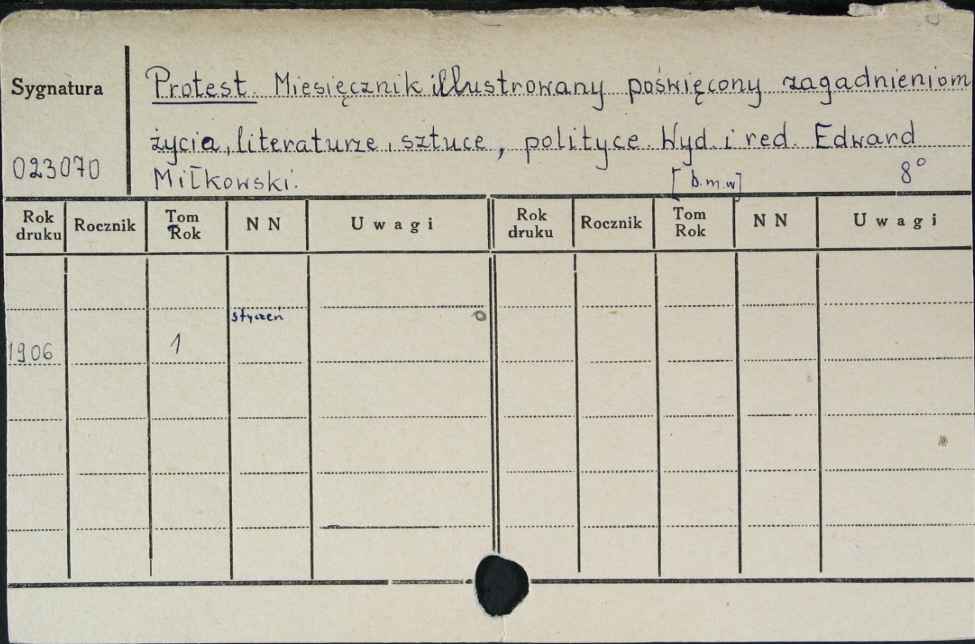 Sygnatura
Protest. Miesięcznik illustrowany poświęcony zagadnieniom
życia, literaturze, sztuce, polityce. Wyd. i red. Edward
023070
Miłkowski. [b.m.w] 8°
Rok druku Rocznik Tom Rok N N Uwagi Rok druku Rocznik Tom Rok N N Uwagi
styczeń
1906 1